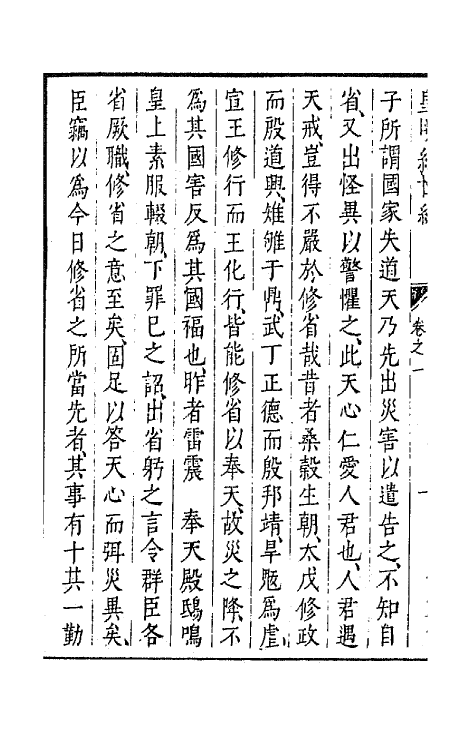 子所謂國家失道天乃先出災害以遣告之、不知自
省、又出怪異以警懼之、此天心仁愛人君也、人君遇
天戒、豈得不嚴於修省哉昔者桑穀生朝、太戊修政
而殷道興、雉雊于鼎、武丁正德而殷邦靖、旱魃爲虐、
宣王修行而王化行、皆能修省以奉天、故災之降、不
爲其國害反爲其國福也、昨者雷震　奉天殿鴟鳴
皇上素服輟朝、下罪巳之詔、出省躬之言令群臣各
省厥職、修省之意至矣、固足以答天心而弭災異矣、
臣竊以爲今日修省之所當先者、其事有十其一勤
卷之一